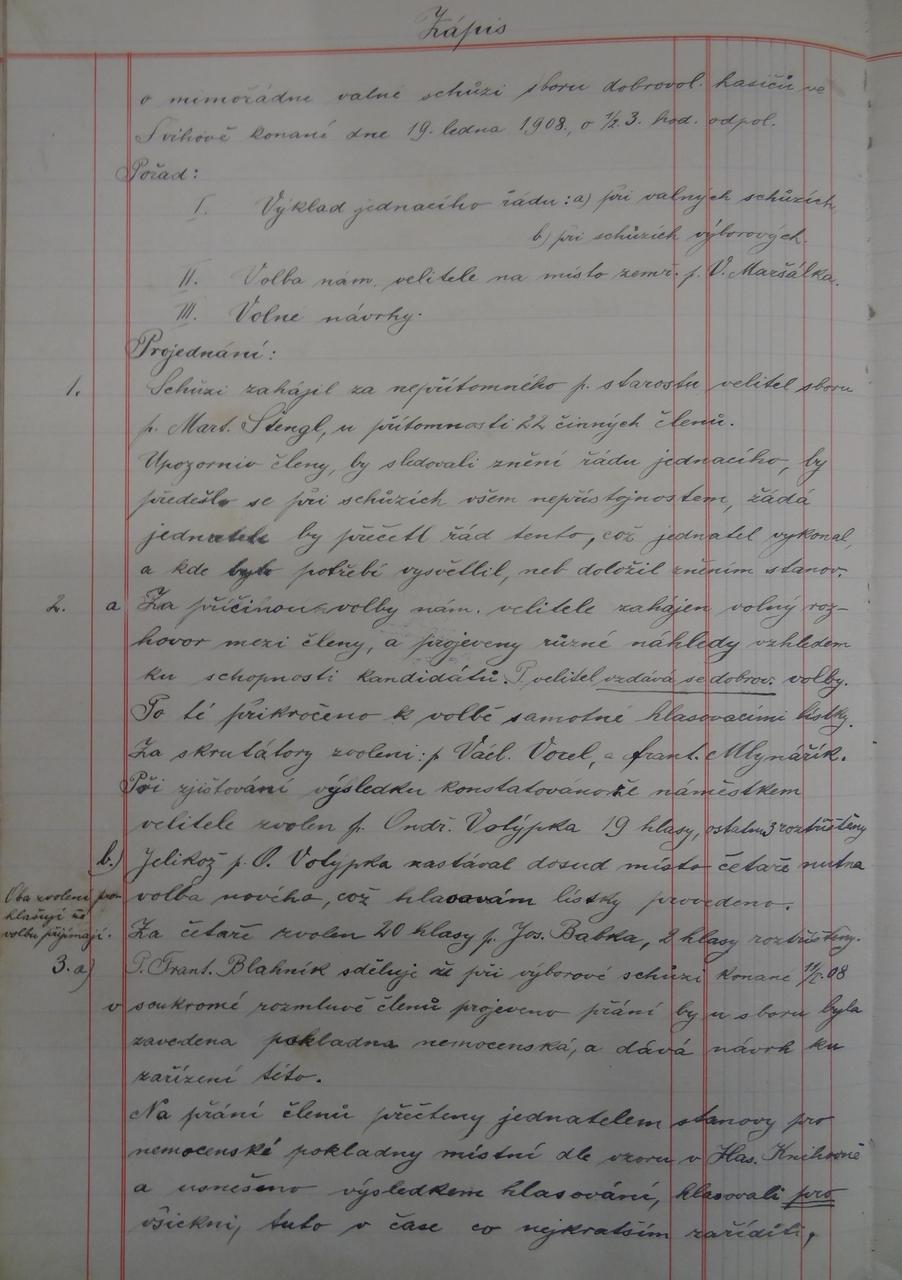 Zápis
o mimořádné valné schůzi sboru dobrovol. hasičů ve
Švihově konané dne 19. ledna 1908, o 1/2 3. hod. odpol.
Pořad:
I. Výklad jednacího řádu: a) při valných schůzích
b) při schůzích výborových.
II. Volba nám. velitele na místo zemř. p. V. Maršálka.
III. Volné návrhy.
Projednání:
1. Schůzi zahájil za nepřítomného p. starostu velitel sboru
p. Mart. Štengl, u přítomnosti 22 činných členů.
Upozorniv členy, by sledovali znění řádu jednacího, by
předešlo se při schůzích všem nepřístojnostem, žádá
jednatele by přečetl řád tento, což jednatel vykonal,
a kde bylo potřebí vysvětlil, neb doložil zněním stanov.
2. a Za příčinou volby nám. velitele zahájen volný roz-
hovor mezi členy, a projeveny různé náhledy vzhledem
ku schopnosti kandidátů. P velitel vzdává se dobrov. volby.
Po té přikročeno k volbě samotné hlasovacími lístky.
Za skrutátory zvoleni: p Václ. Vocel, a Frant. Mlynářík.
Při zjištování výsledku konstatovano že náměstkem
velitele zvolen p. Ondř. Volýpka 19 hlasy, ostatní 3 roztříštěny
b.) Jelikož p. O. Volýpka zastával dosud místo četaře nutna
volba nového, což hlasovám lístky provedeno.
Oba zvolení pro-
hlašují že
volbu přijímají.
Za četaře zvolen 20 hlasy p. Jos. Babka, 2 hlasy roztříštěny.
3. a) P. Frant. Blahník sděluje že při výborové schůzi konané 11/I. 08
v soukromé rozmluvě členů projeveno přání by u sboru byla
zavedena pokladna nemocenská, a dává návrh ku
zařízení této.
Na přání členů přečteny jednatelem stanovy pro
nemocenské pokladny místní dle vzoru v Has. Knihovně
a usnešeno výsledkem hlasování, hlasovali pro
všickni, tuto v čase co nejkratším zaříditi,